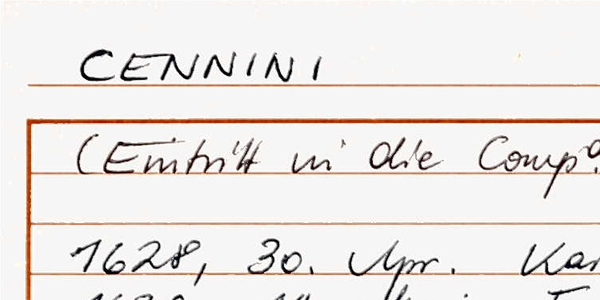 CENNINI
(Eintritt in die Comp.
1628, 30. Apr. Kar